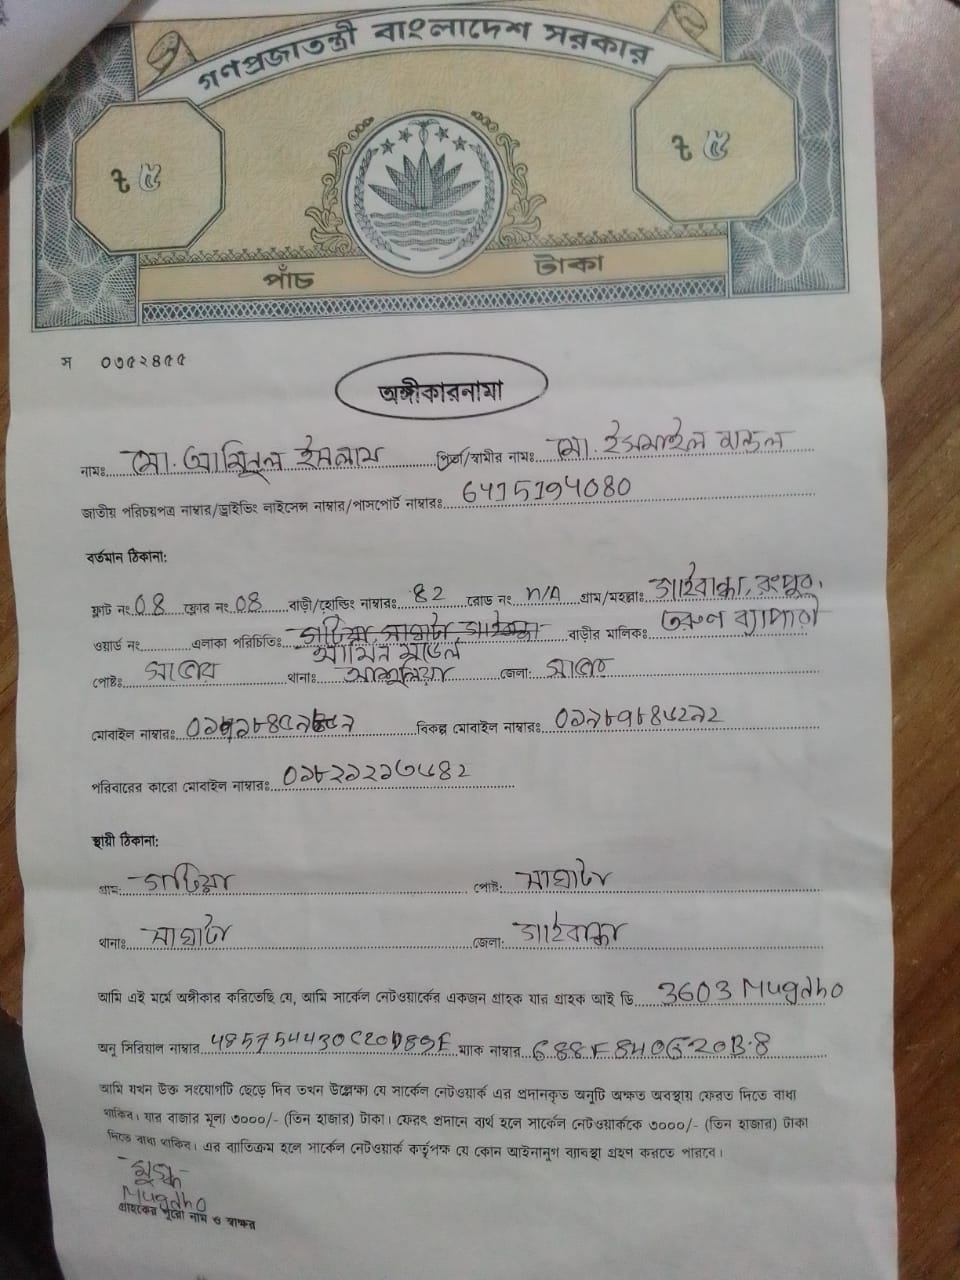 গণপ্রজাতন্ত্রী বাংলাদেশ সরকার
৳ ৫ ৳ ৫
পাঁচ টাকা
স ০৩৫২৪৫৫
অঙ্গীকারনামা
নামঃ মো. আমিনুল ইসলাম পিতা/স্বামীর নামঃ মো. ইসমাইল মন্ডল
জাতীয় পরিচয়পত্র নাম্বার/ড্রাইভিং লাইসেন্স নাম্বার/পাসপোর্ট নাম্বারঃ 6415194080
বর্তমান ঠিকানা:
ফ্লাট নং 08 ফ্লোর নং 08 বাড়ী/হোল্ডিং নাম্বারঃ 82 রোড নং N/A গ্রাম/মহল্লাঃ গাইবান্ধা, রংপুর,
ওয়ার্ড নং এলাকা পরিচিতিঃ বাড়ীর মালিকঃ তরুণ ব্যাপারী
পোষ্টঃ সাভার থানাঃ আশুলিয়া জেলা:
মোবাইল নাম্বারঃ বিকল্প মোবাইল নাম্বারঃ
পরিবারের কারো মোবাইল নাম্বারঃ
স্থায়ী ঠিকানা:
গ্রাম: গটিয়া পোষ্ট: সাঘাটা
থানাঃ সাঘাটা জেলা: গাইবান্ধা
আমি এই মর্মে অঙ্গীকার করিতেছি যে, আমি সার্কেল নেটওয়ার্কের একজন গ্রাহক যার গ্রাহক আই ডি 3603 Mugdho
অনু সিরিয়াল নাম্বার ম্যাক নাম্বার
আমি যখন উক্ত সংযোগটি ছেড়ে দিব তখন উল্লেক্ষ্য যে সার্কেল নেটওয়ার্ক এর প্রদানকৃত অনুটি অক্ষত অবস্থায় ফেরত দিতে বাধ্য
থাকিব। যার বাজার মূল্য ৩০০০/- (তিন হাজার) টাকা। ফেরৎ প্রদানে ব্যর্থ হলে সার্কেল নেটওয়ার্ককে ৩০০০/- (তিন হাজার) টাকা
দিতে বাধ্য থাকিব। এর ব্যাতিক্রম হলে সার্কেল নেটওয়ার্ক কর্তৃপক্ষ যে কোন আইনানুগ ব্যাবস্থা গ্রহণ করতে পারবে।
মুগ্ধ
Mugdho
গ্রাহকের পুরো নাম ও স্বাক্ষর